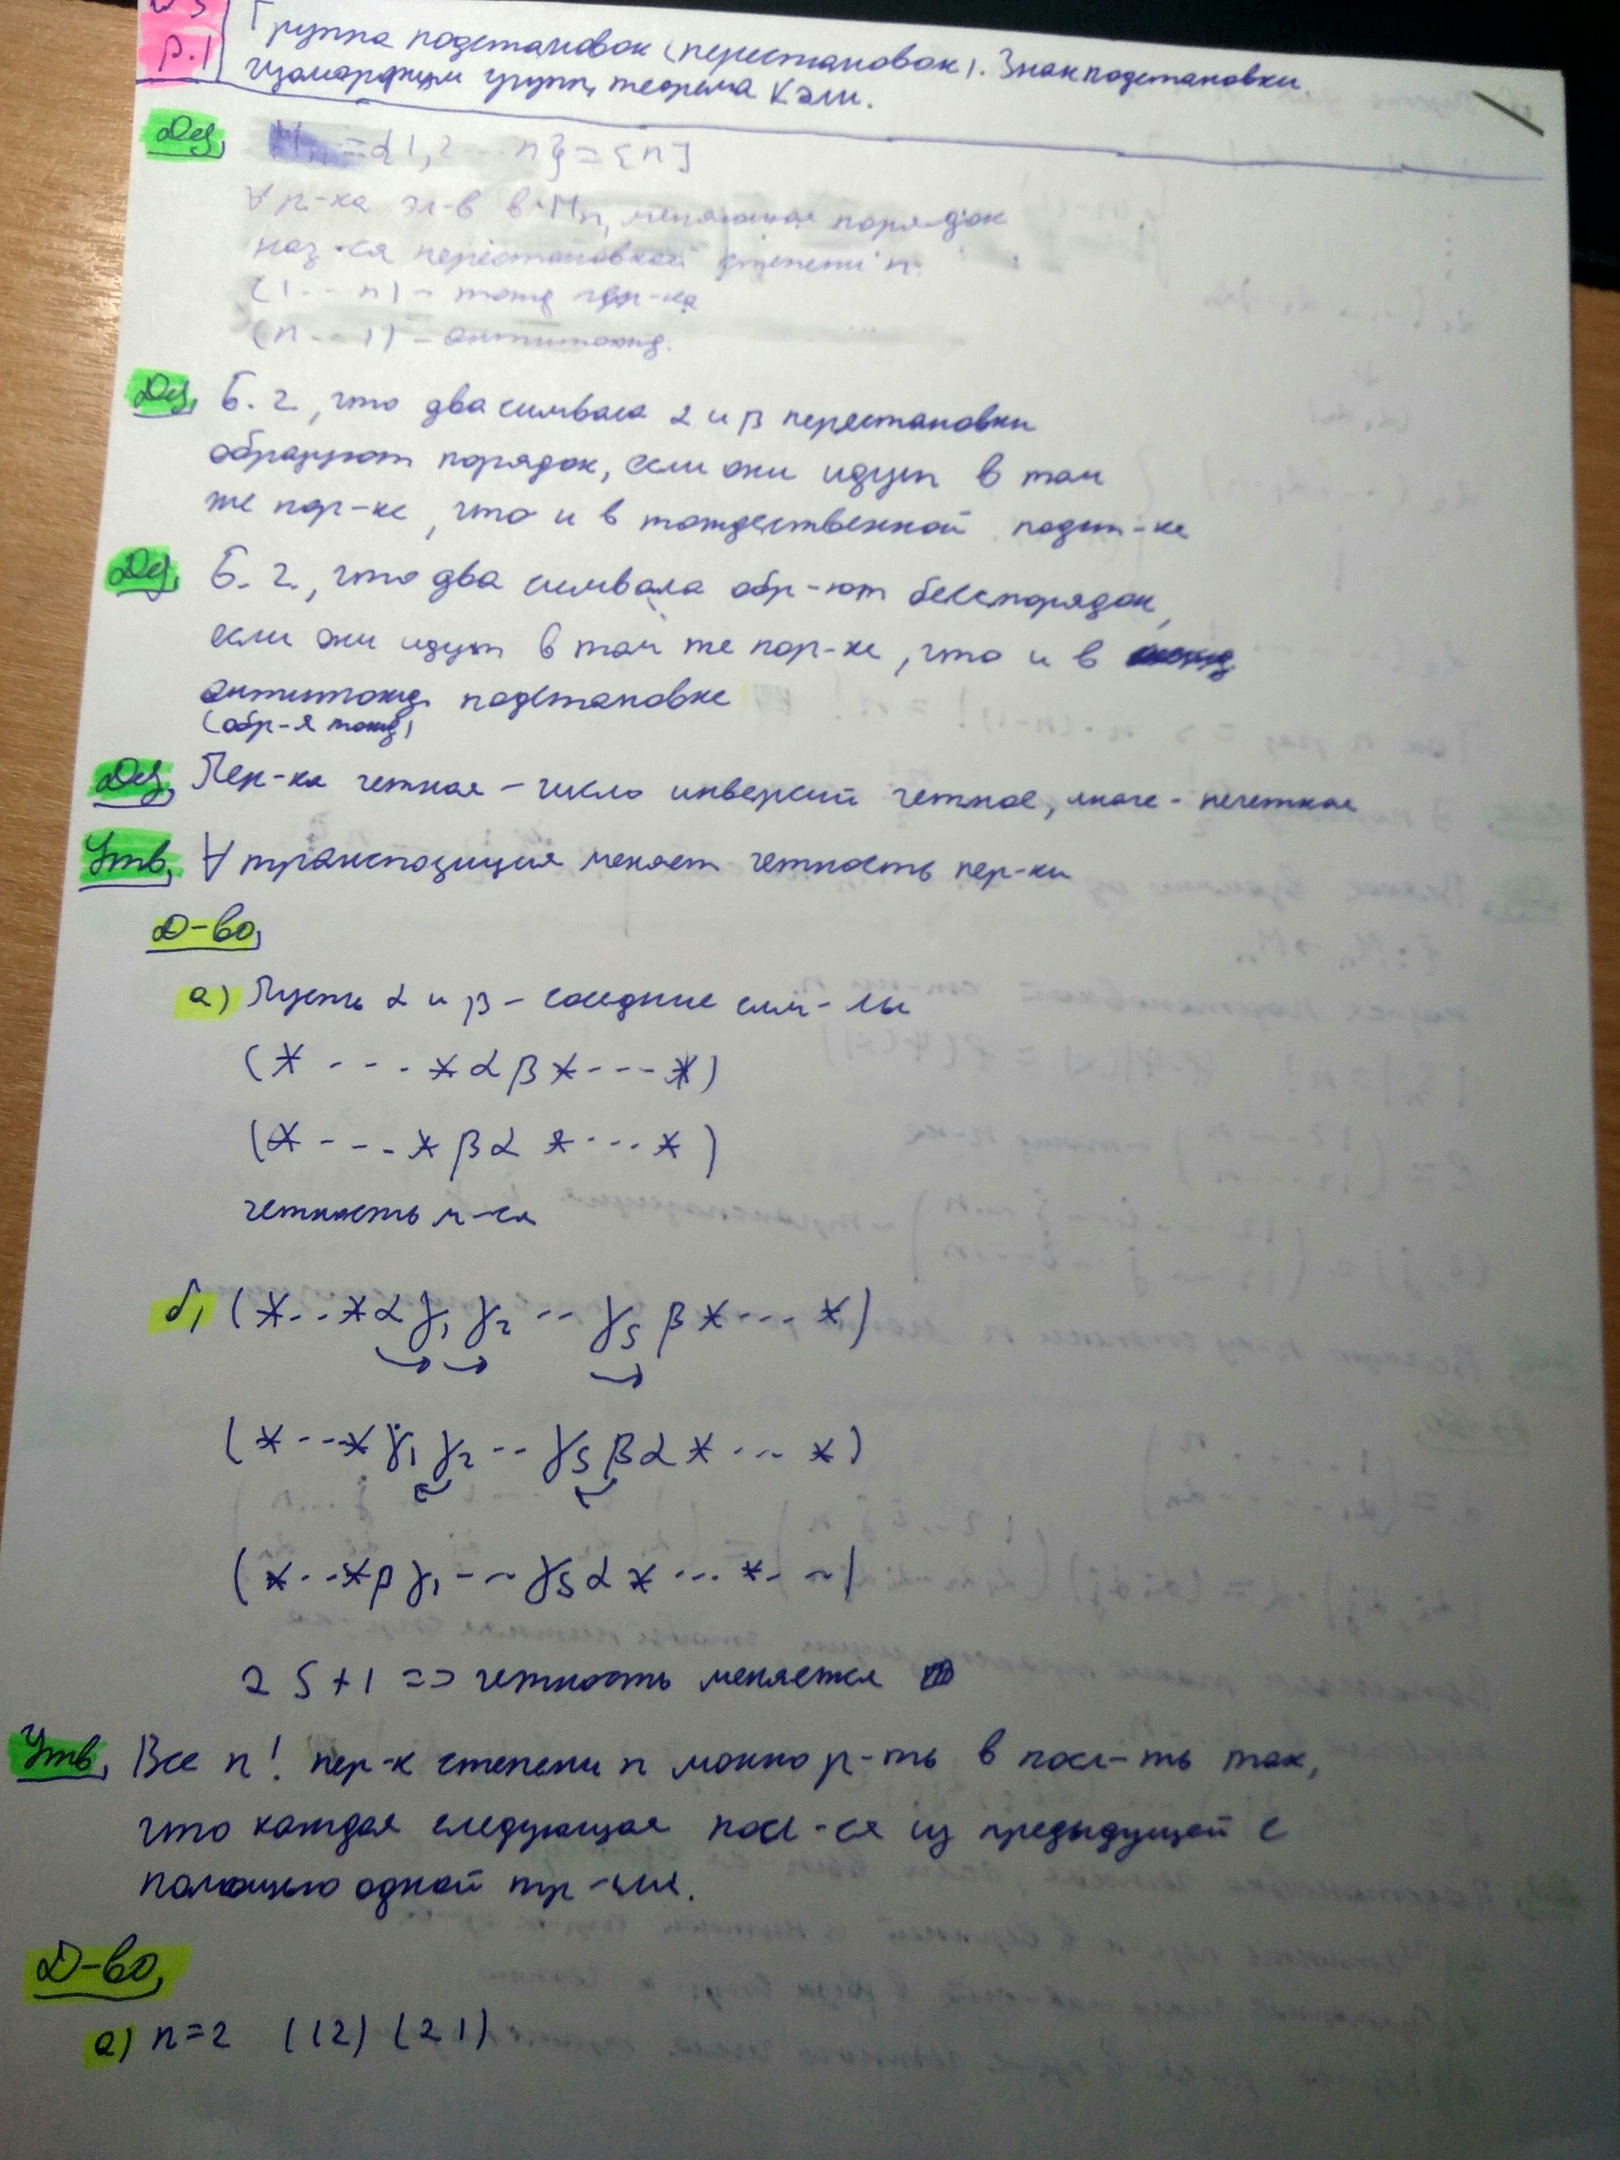 р.1
Группа подстановок (перестановок). Знак подстановки.
Изоморфизм групп, теорема Кэли.
Def, Mn = {1,2...n} = {n}
∀ п-ка эл-в в Mn, меняющая порядок
наз-ся перестановкой степени n.
(1...n) - тожд
(n...1) - антитожд.
Def, Б. г., что два символа α и β перестановки
образуют порядок, если они идут в том
же пор-ке, что и в тождественной подст-ке
Def, Б. г., что два символа обр-ют беспорядок,
если они идут в том же пор-ке, что и в
антитожд. подстановке
(обр-я тожд)
Def, Пер-ка четная - число инверсий четное, иначе - нечетная
Утв, ∀ транспозиция меняет четность пер-ки
Д-во,
а) Пусть α и β - соседние сим-лы
(* - - - . * α β * - - - *)
(* - - - - * β α * - . . . *)
четность м-ся
б, (*...* α γ₁ γ₂ -- γs β * --.. *)
(* ---* γ₁ γ₂ -- γs β α * .-.. *)
(*...* β γ₁ - - ~ γs α * ... *. - ~)
2 S + 1 => четность меняется
Утв, Все n! пер-к степени n можно р-ть в посл-ть так,
что каждая следующая пол-ся из предыдущей с
помощью одной тр-ции.
Д-во,
а) n=2 (12) (21)